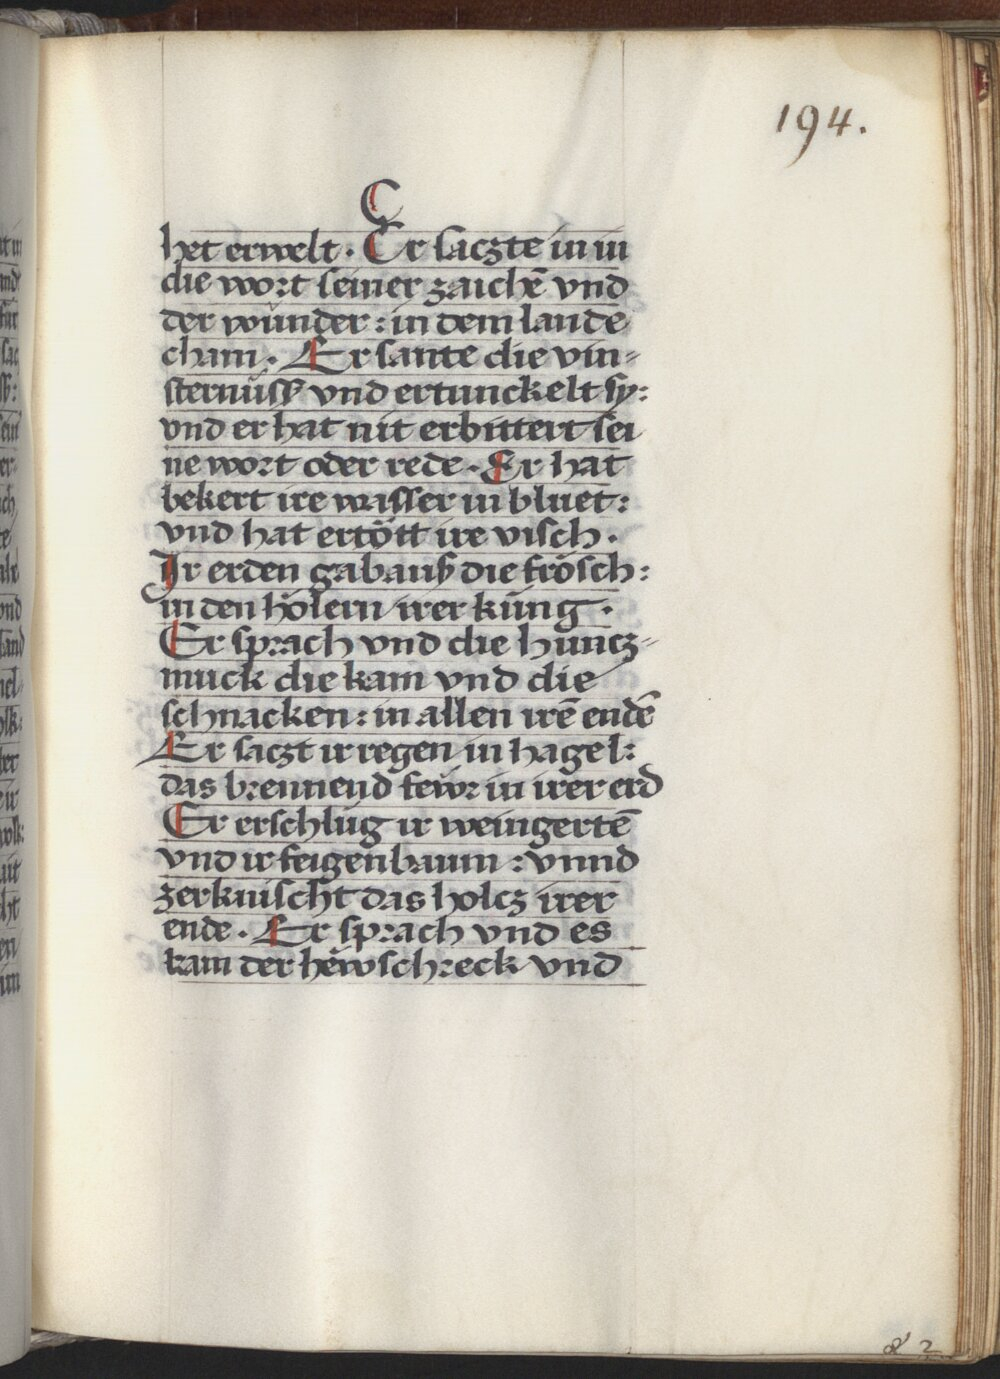 194.
C
het erwelt · Er saczte in in
die wort seiner zaichē vnd
der wunder : in dem lande
cham · Er sante die vin-
sternüss vnd ertunckelt sy :
vnd er hat nit erbittert sei
ne wort oder rede · Er hat
bekert ire wasser in bluet :
vnd hat ertött ire visch ·
Ir erden gab auß die frösch :
in den hölern irer küng ·
Er sprach vnd die huncz-
muck die kam vnd die
schnacken : in allen irē endē
Er saczt ir regen in hagel :
das brennend fewr in irer erd
Er erschlůg ir weingertē
vnd ir feigenbaum : vnnd
zerknischt das holcz irer
ende · Er sprach vnd es
kam der hewschreck vnd
2